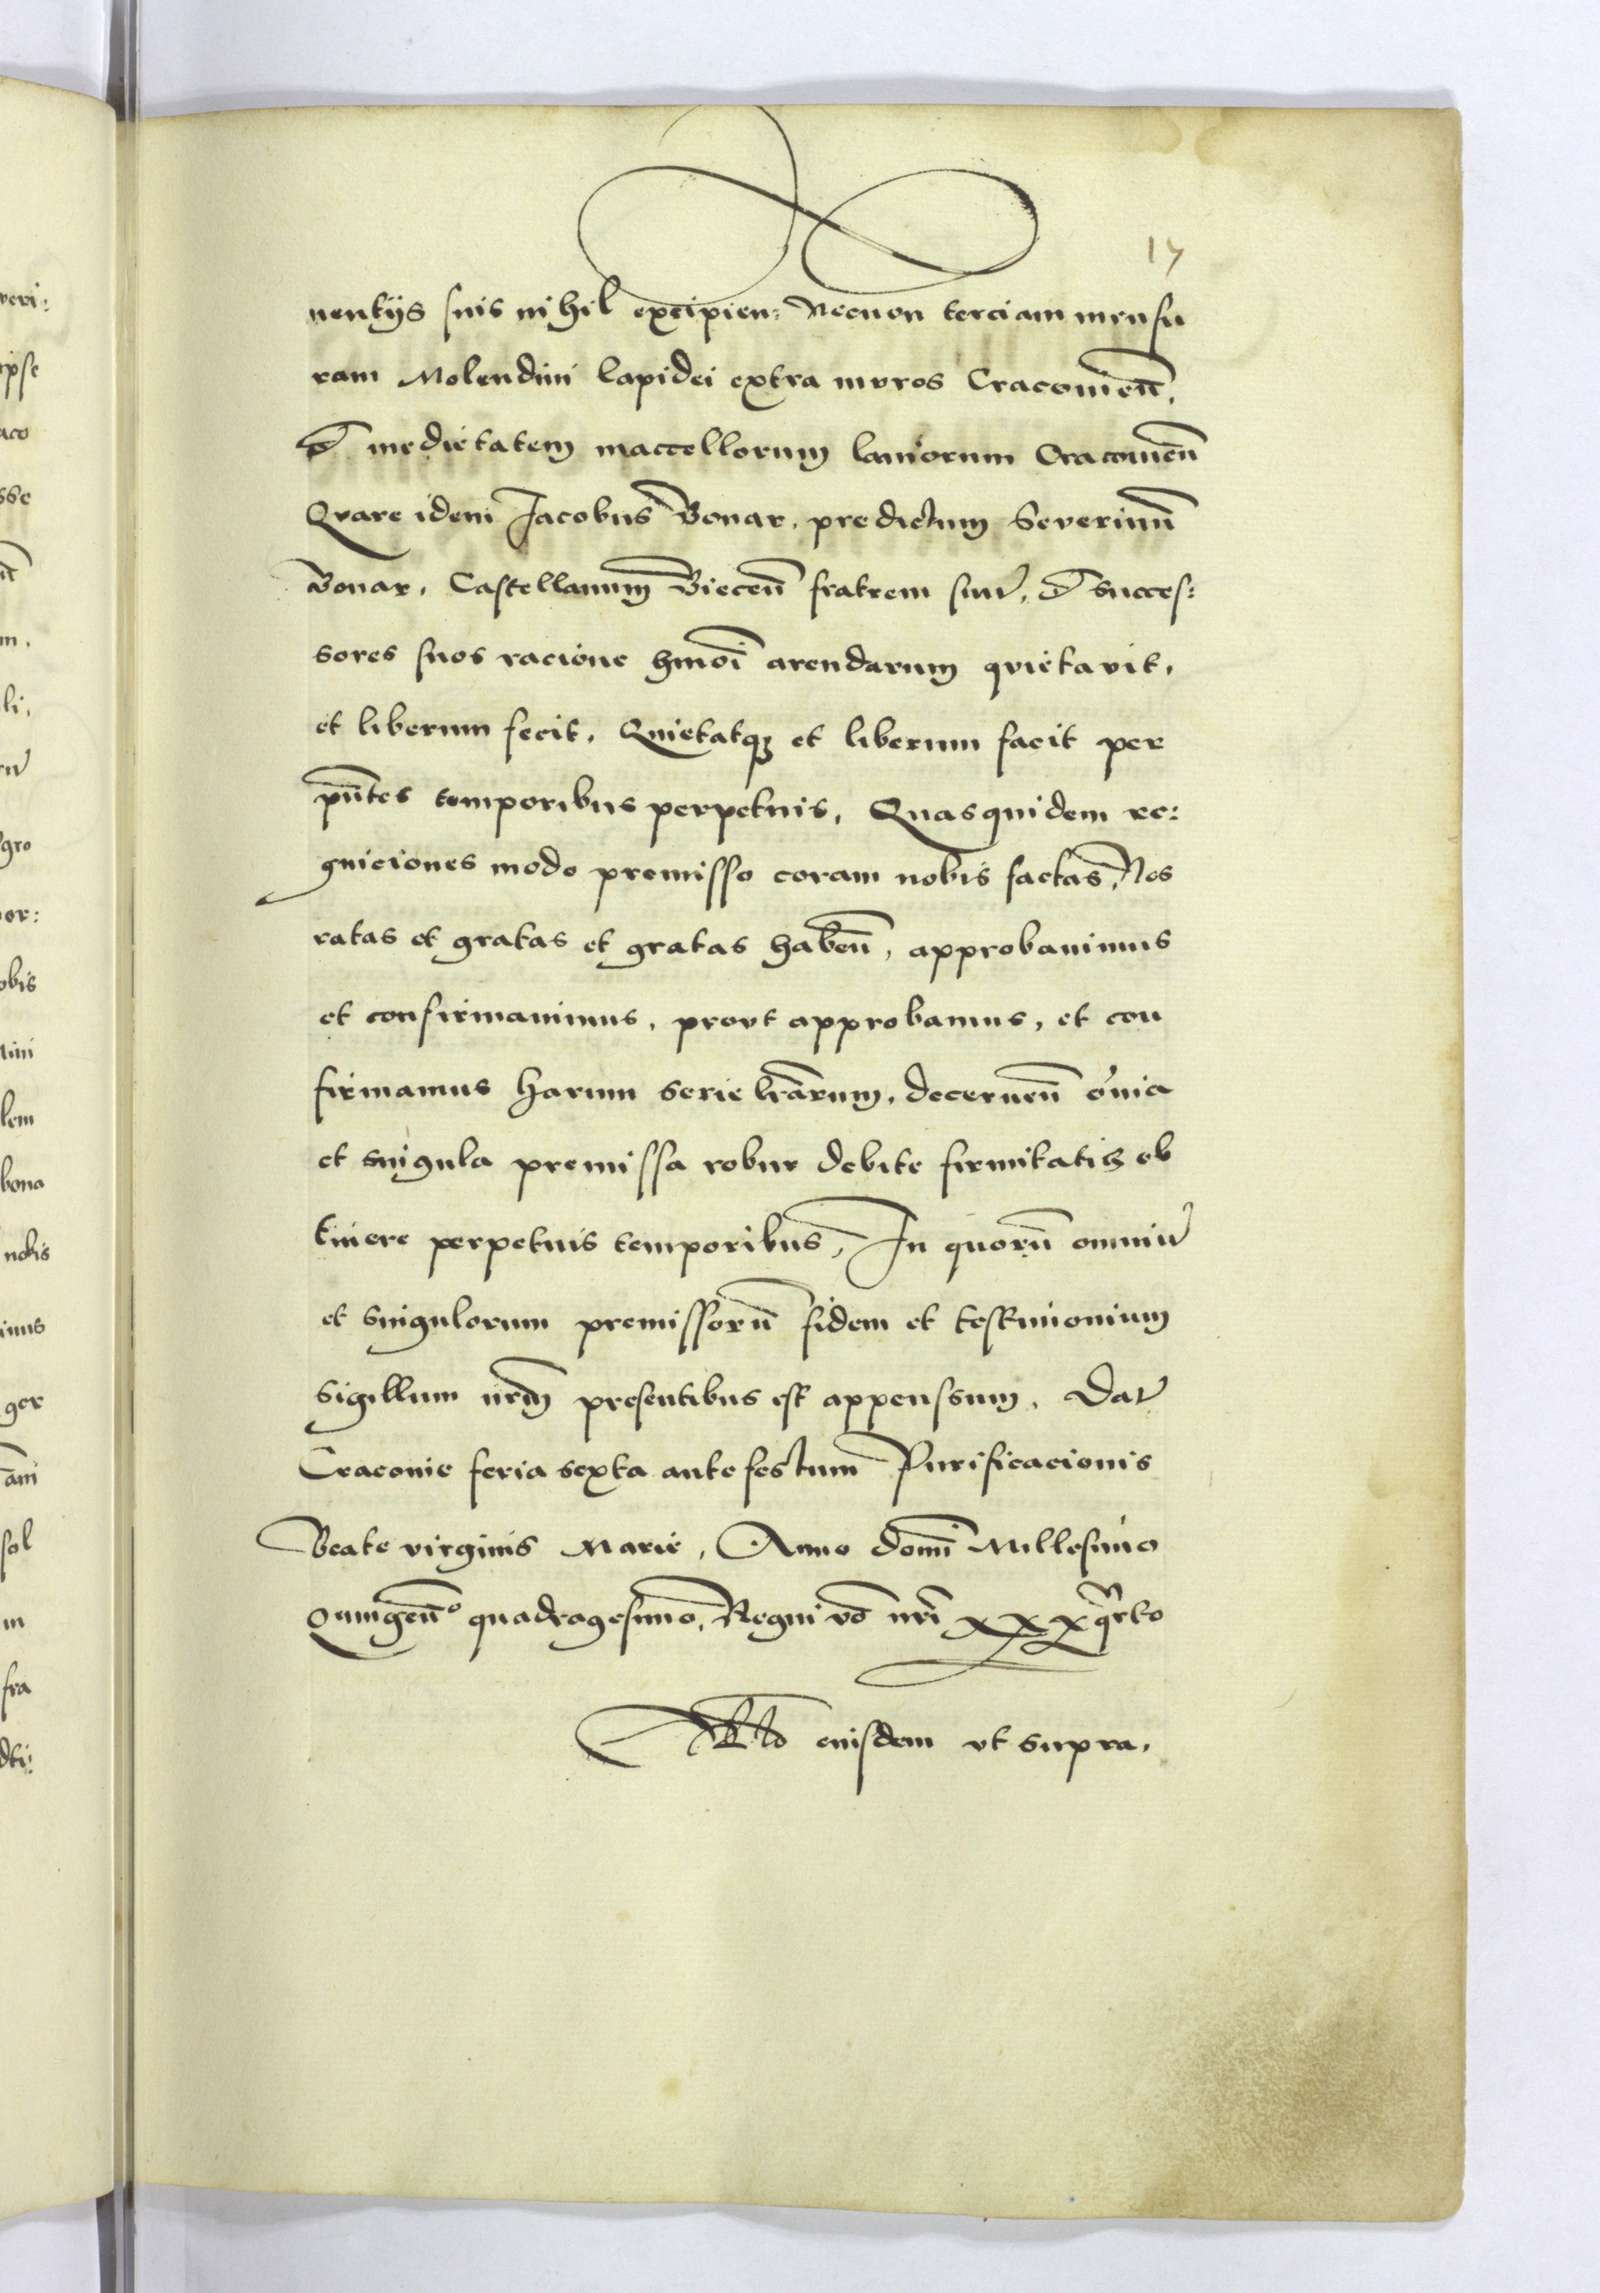 17
nentijs suis nihil excipien: Necnon terciam mensu
ram Molendini lapidei extra muros Cracouien̄,
et medietatem maccellorum laniorum Cracouien̄
Quare idem Jacobus Bonar, predictum Severinū
Bonar, Castellanum Biecen̄ fratrem suū, et succes:
sores suos racione hmōi arendarum quietavit,
et liberum fecit, Quietatqꝫ et liberum facit per
pn̄tes temporibus perpetuis, Quasquidem re:
gniciones modo premisso coram nobis factas, Nos
ratas et gratas et gratas haben̄, approbauimus
et confirmauimus, prout approbamus, et con
firmamus harum serie lrārum, decernen̄ om̄ia
et singula premissa robur debite firmitatis ob
tinere perpetuis temporibus, In quorū omniū
et singulorum premissorū fidem et testimonium
Sigillum nrm̄ presentibus est appenssum, Dat̄
Cracouie feria sexta ante festum Purificacionis
Beate virginis Marie, Anno domi̅ Millesimo
Quingen̄º quadragesimo, Regni vō nr̄i xxxqrto
eiusdem vt supra,
veri:
ipse
aco
sse
m,
li,
gro
or:
obis
lem
bona
nobis
imus
ger
sol
m
fra